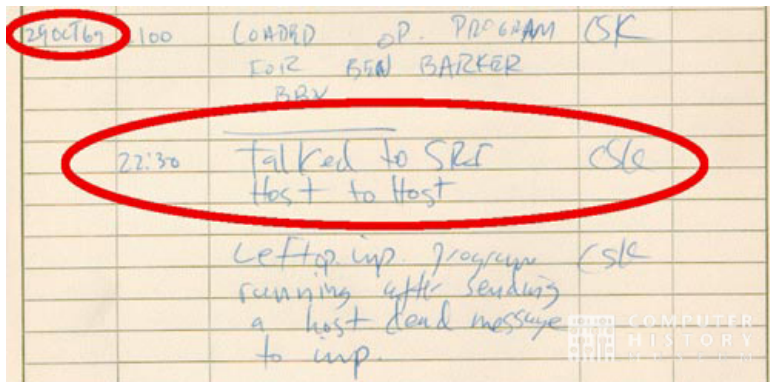 29 OCT 69 2100 LOADED OP. PROGRAM CSK
FOR BEN BARKER
BBN
22:30 Talked to SRI CSK
Host to Host
Left op. imp. program CSK
running after sending
a host dead message
to imp.
COMPUTER
HISTORY
MUSEUM